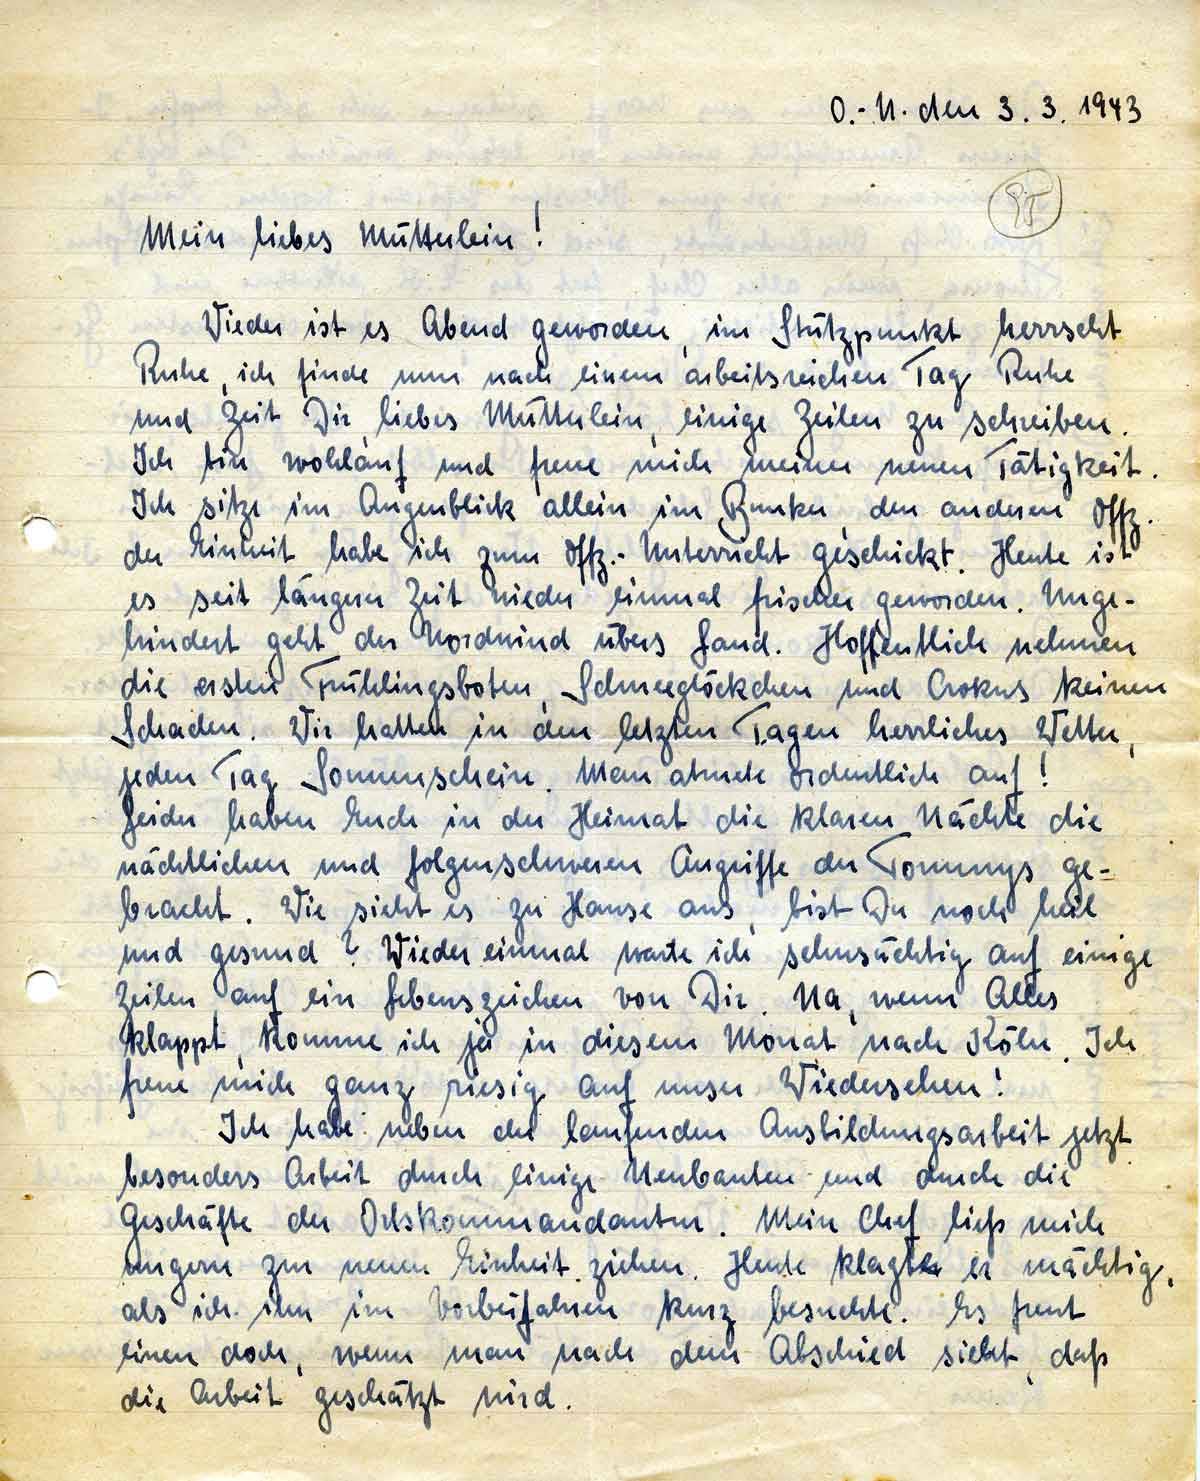 O.-U. den 3. 3. 1943
Mein liebes Mütterlein!
Wieder ist es Abend geworden, im Stützpunkt herrscht
Ruhe, ich finde nun nach einem arbeitsreichen Tag Ruhe
und Zeit Dir, liebes Mütterlein, einige Zeilen zu schreiben.
Ich bin wohlauf und freue mich meiner neuen Tätigkeit.
Ich sitze im Augenblick allein im Bunker, den anderen Offz.
der Einheit habe ich zum Offz.-Unterricht geschickt. Heute ist
es seit längerer Zeit wieder einmal frischer geworden. Unge-
hindert geht der Nordwind übers Land. Hoffentlich nehmen
die ersten Frühlingsboten, Schneeglöckchen und Crokus keinen
Schaden. Wir hatten in den letzten Tagen herrliches Wetter,
jeden Tag Sonnenschein. Man atmete ordentlich auf!
Leider haben Euch in der Heimat die klaren Nächte die
nächtlichen und folgenschweren Angriffe der Tommys ge-
bracht. Wie sieht es zu Hause aus, bist Du noch heil
und gesund? Wieder einmal warte ich sehnsüchtig auf einige
Zeilen auf ein Lebenszeichen von Dir. Na, wenn Alles
klappt, komme ich ja in diesem Monat nach Köln. Ich
freue mich ganz riesig auf unser Wiedersehen!
Ich habe neben der laufenden Ausbildungsarbeit jetzt
besonders Arbeit durch einige Neubauten und durch die
Geschäfte des Ortskommandanten. Mein Chef ließ mich
ungern zur neuen Einheit ziehen. Heute klagte er mächtig,
als ich ihn im Vorbeifahren kurz besuchte. Es freut
einen doch, wenn man nach dem Abschied sieht, daß
die Arbeit geschätzt wird.